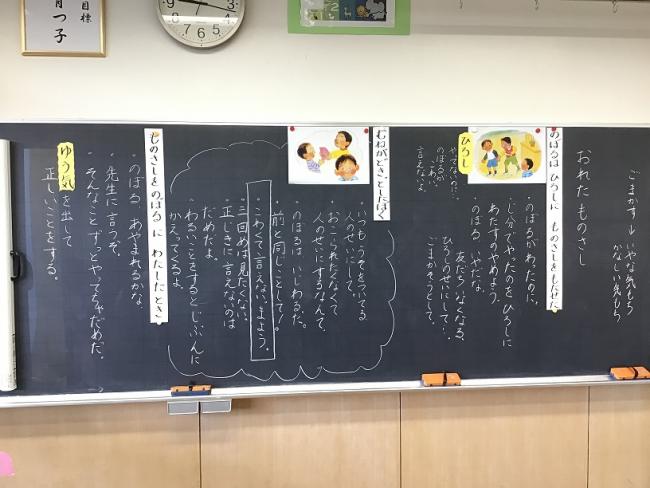 ごまかす→いやな気もち
かなしい気もち
おれたものさし
のぼるはひろしにものさしをもたせた
・のぼるがわたのに、
・じ分でやたのをひろしに
わたすのやめよう。
・のぼるいやだな。
友だちじゃなくなる、
ひろしのせいにして…
ごまかそうとして、
ひろし
やってないのに…
のぼるが
こわい、
言えないよ。
むねがどきっとしたぼく
・いつもうそをついてる
人のせいにして。
・おこられたくなくて
人のせいにするなんて、
・のぼるはいじわるだ。
・前と同じことして。
・こわくて言えない、まよう。
・三回めは見たくない。
・正じきに言えないのは
だめだよ。
・わるいことをするとじぶんに
かえってくるよ。
ものさしをのぼるにわたしたとき
・のぼるあやまれるかな。
・先生に言うぞ。
・そんなことずっとやってちゃだめだ。
ゆう気を出して
正しいことをする。
目標
育つ子